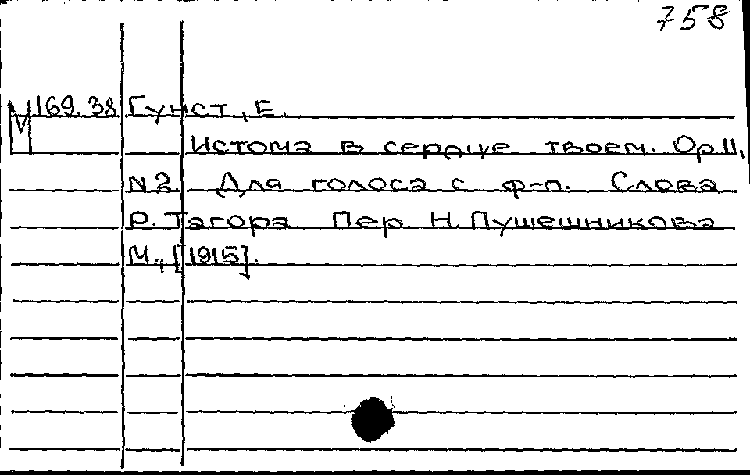 758
М 169.38 Гунст, Е.
Истома в сердце твоем. Op.11,
N2 Для голоса с ф-п. Слова
Р. Тагора Пер. Н. Пушешникова
М., [1915].